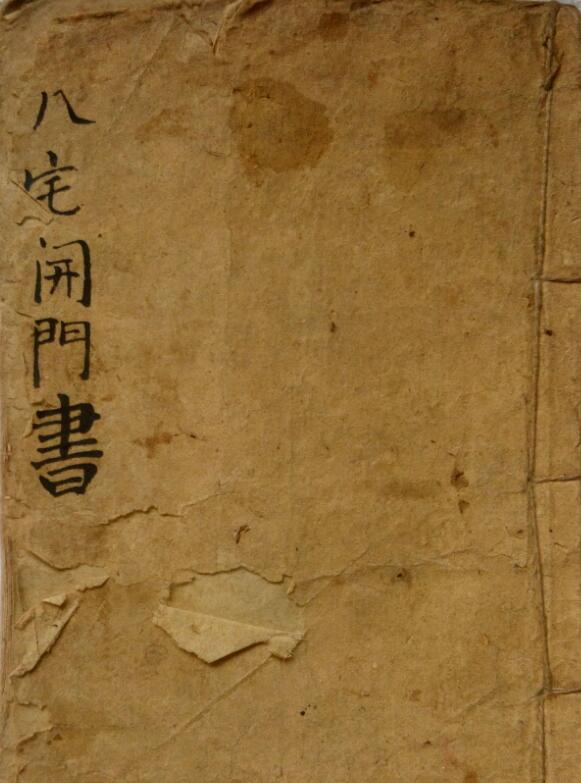 八宅開門書